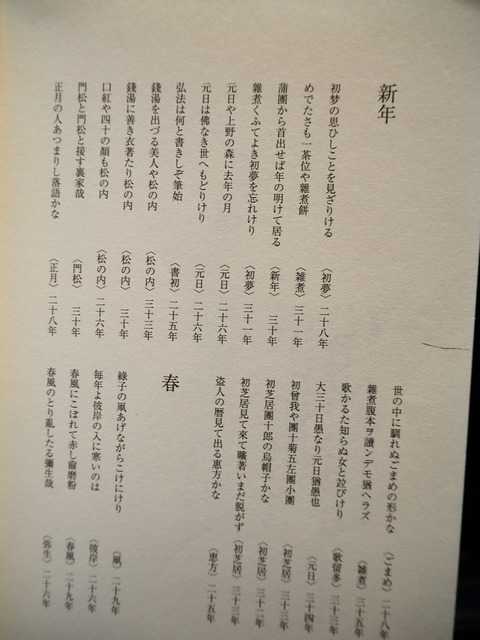 新年
初梦の思ひしことを見ざりける 〈初夢〉 二十八年
めでたさも一茶位や雜煮餅 〈雜煮〉 三十一年
蒲團から首出せば年の明けて居る 〈新年〉 三十年
雜煮くふてよき初夢を忘れけり 〈初夢〉 三十一年
元日や上野の森に去年の月 〈元日〉 二十六年
元日は佛なき世へもどりけり 〈元日〉 二十六年
弘法は何と書きしぞ筆始 〈書初〉 二十五年
錢湯を出づる美人や松の内 〈松の内〉 三十三年
錢湯に善き衣著たり松の内 〈松の内〉 三十年
口紅や四十の顏も松の内 〈松の内〉 二十六年
門松と門松と接す裏家哉 〈門松〉 三十年
正月の人あつまりし落語かな 〈正月〉 二十八年
世の中に馴れぬごまめの形かな 〈ごまめ〉 二十八年
雜煮腹本ヲ讀ンデモ猶ヘラズ 〈雜煮〉 三十五年
歌かるた知らぬ女と竝びけり 〈歌留多〉 三十三年
大三十日愚なり元日猶愚也 〈元日〉 三十四年
初曾我や團十菊五左團小團 〈初芝居〉 三十三年
初芝居團十郎の烏帽子かな 〈初芝居〉 三十二年
初芝居見て來て曠著いまだ脱がず 〈初芝居〉 三十三年
盗人の暦見て出る恵方かな 〈恵方〉 二十五年
春
綠子の凧あげながらこけにけり 〈凧〉 二十九年
毎年よ彼岸の入に寒いのは 〈彼岸〉 二十六年
春風にこぼれて赤し齒磨粉 〈春風〉 二十九年
春風のとり亂したる彌生哉 〈弥生〉 二十六年